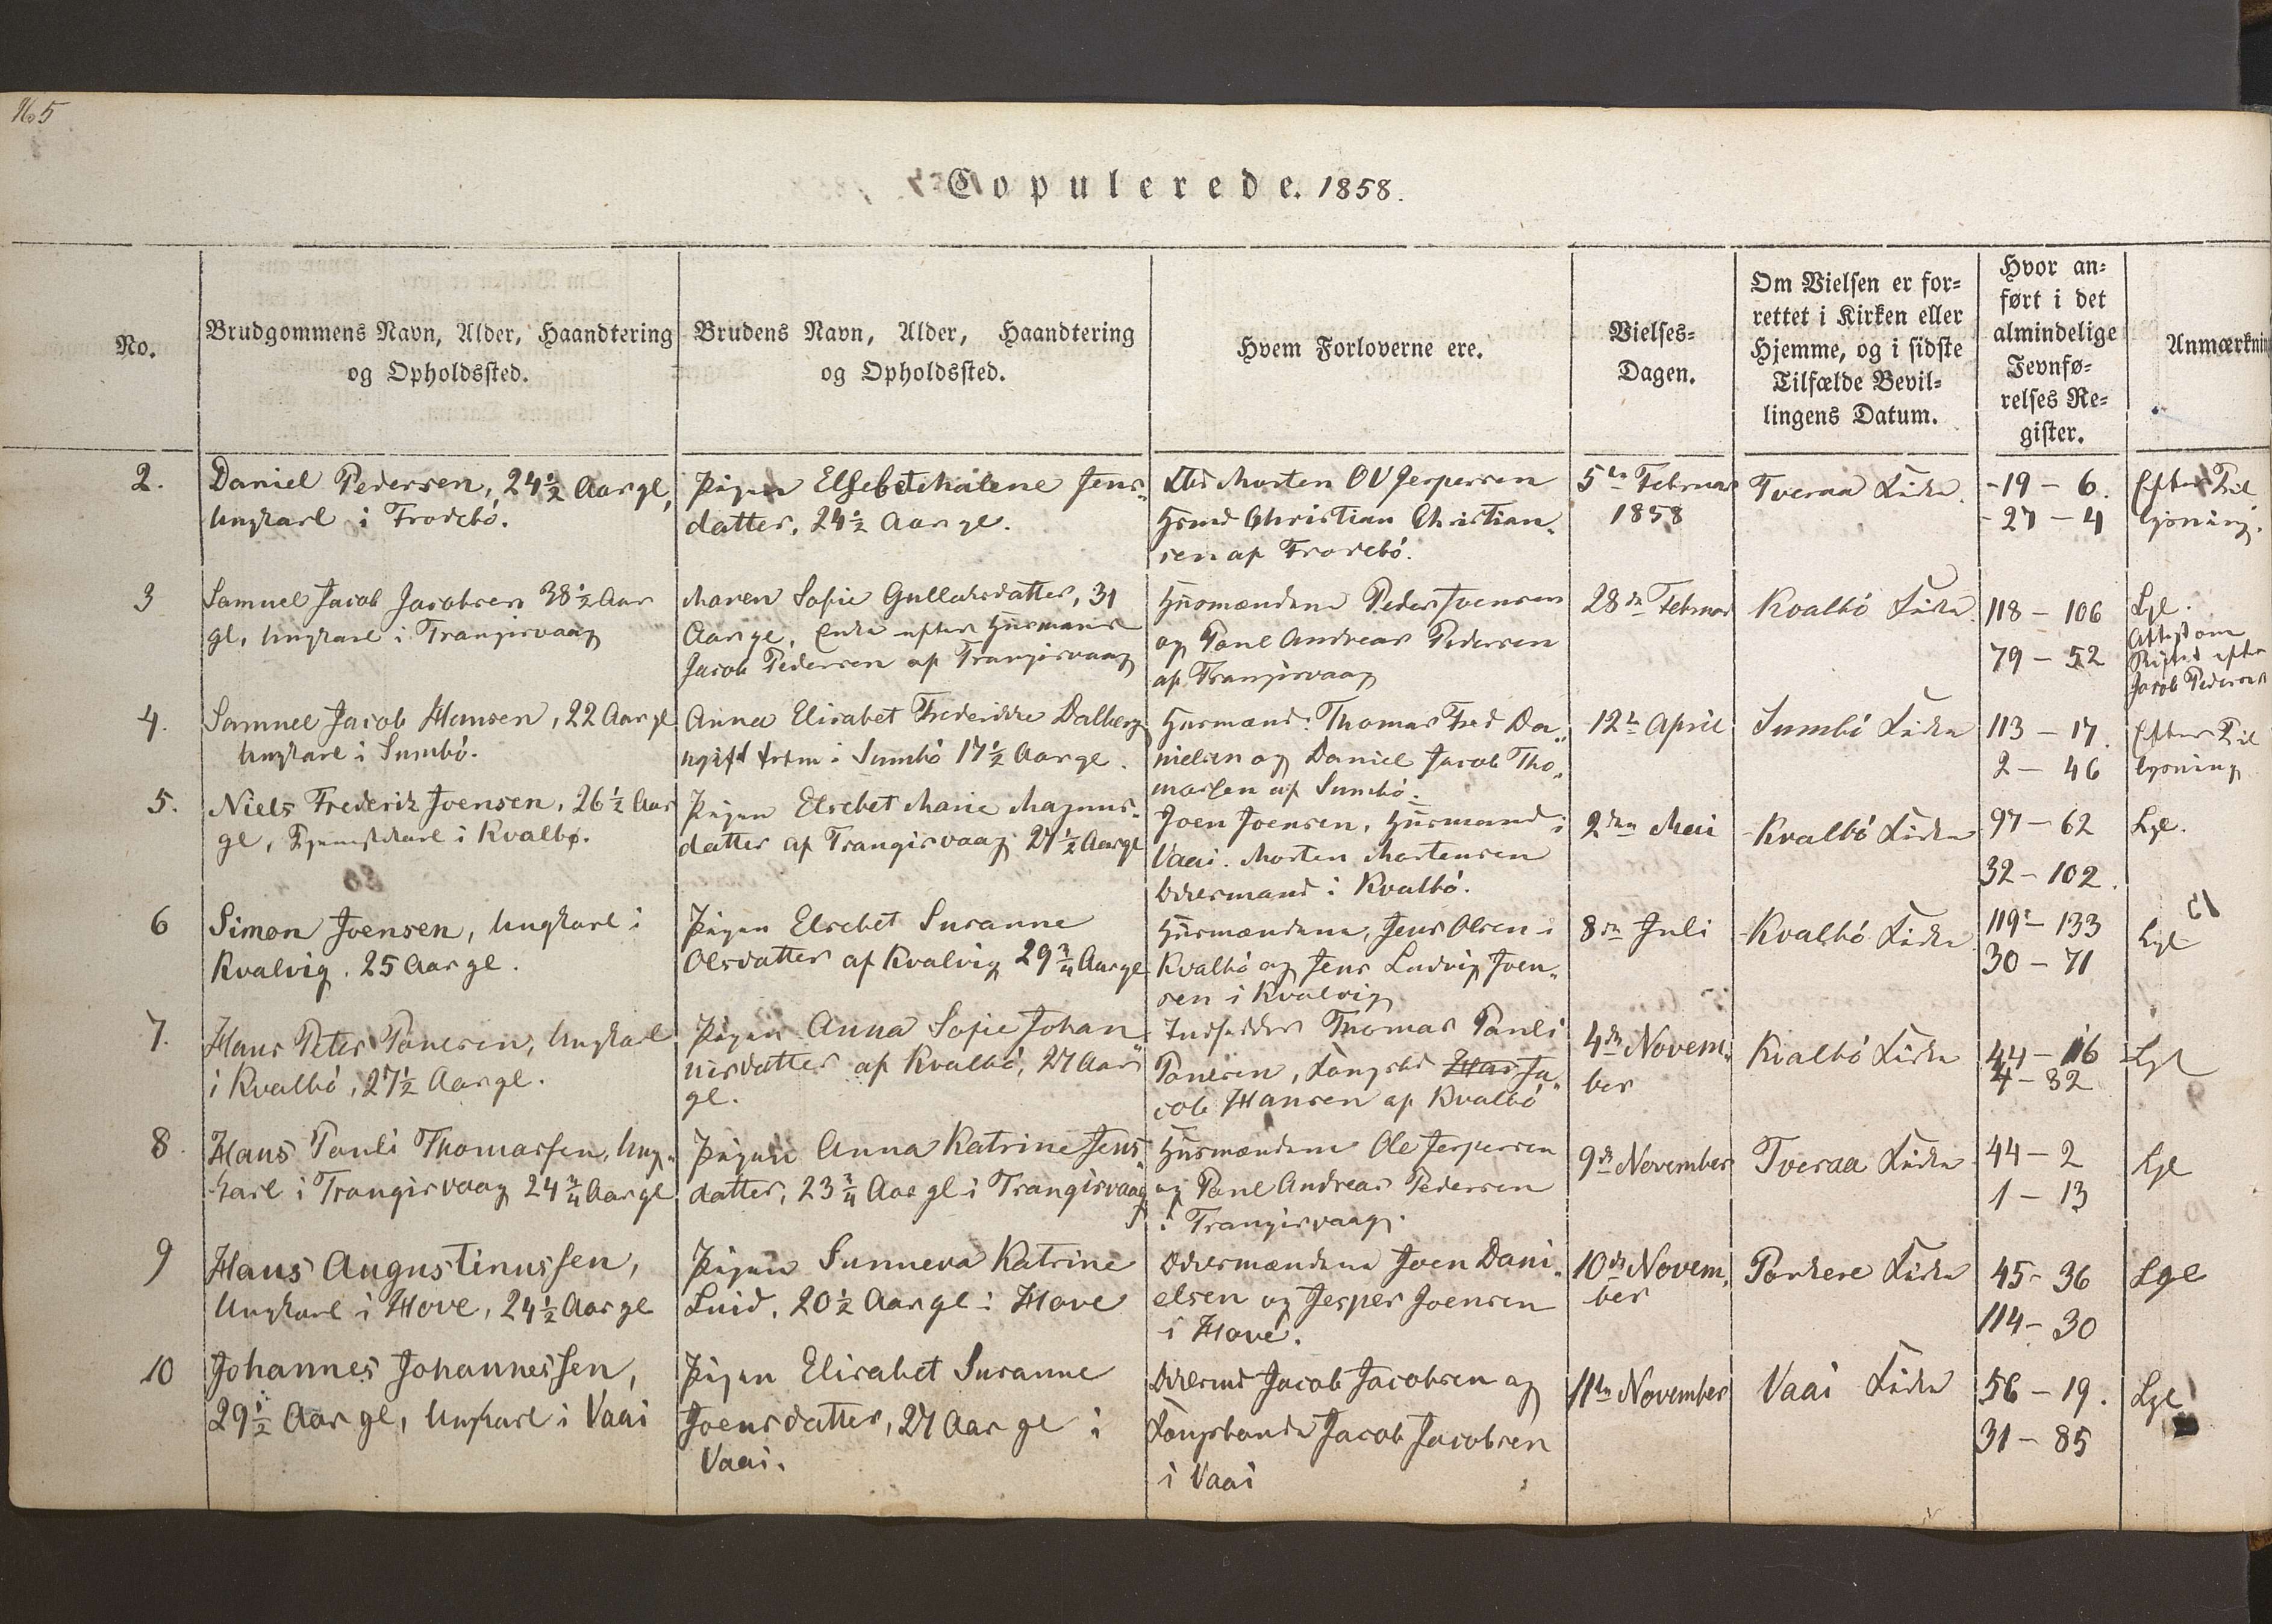 No 5
Copulerede. 1858.
No.
Brudgommens Navn, Alder, Haandtering
og Opholdssted.
Brudens Navn, Alder, Haandtering
og Opholdssted.
Hvem Forloverne ere.
Vielses-
Dagen.
Om Vielsen er for-
rettet i Kirken eller
Hjemme, og i sidste
Tilfælde Bevil-
lingens Datum.
Hvor an-
ført i det
almindelige
Jevnfø-
relses Re-
gister.
Anmærknin
2.
Daniel Pedersen, 24½ Aar gl,
Ungkarl i Frodebö.
Pigen Elsebet Malene Jens-
datter, 24½ Aar gl.
Morten OV Jespersen
Hsmd Christian Christian-
sen af Frodebö.
5te Februar
1858
Tveraa Kirke.
-19 - 6.
-27 - 4
Efter Til
lysning.
3
Samuel Jacob Jacobsen 38½ Aar
gl, Ungkarl i Trangisvaag
Maren Sofie Gullaksdatter, 31
Aar gl, Enke efter Husmand
Jacob Pedersen af Trangisvaag
Husmændene Peder Joensen
og Poul Andreas Pedersen
af Trangisvaag
28de Februar
Kvalbö Kirke
118 - 106
79 - 52
Lgl.
Attest om
Skiftet efter
Jacob Pedersen
4.
Samuel Jacob Hansen, 22 Aar gl
Ungkarl i Sumbö.
Anna Elisabet Frederikke Dalberg
ugift i Sumbö 17½ Aar gl.
Husmænd: Thomas Fred Da-
nielsen og Daniel Jacob Tho-
massen af Sumbö.
12te April
Sumbö Kirke
113 - 17.
2 - 46
Efter Til
lysning
5.
Niels Frederik Joensen, 26½ Aar
gl, Tjenestkarl i Kvalbø.
Pigen Elsebet Marie Magnus-
datter af Trangisvaag 27½ Aar gl
Joen Joensen, Husmand i
Vaai. Morten Mortensen
Odelsmand i Kvalbö.
2den Mai
Kvalbö Kirke
97 - 62
32 - 102.
Lgl.
6
Simon Joensen, Ungkarl i
Kvalvig. 25 Aar gl.
Pigen Elsebet Susanne
Olsdatter af Kvalvig 29¾ Aar gl
Husmændene, Jens Olsen i
Kvalbö og Jens Ludvig Joen-
sen i Kvalvig
8de Juli
Kvalbö Kirke
119 - 133
30 - 71
Lgl
7.
Hans Peter Poulsen, Ungkarl
i Kvalbö, 27½ Aar gl.
Pigen Anna Sofie Johan-
nesdatter af Kvalbö, 27 Aar
gl.
Indsidder Thomas Pauli
Poulsen, Kongsbd Ja-
cob Hansen af Kvalbö
4de Novem-
ber
Kvalbö Kirke
44 - 16
4 - 32
Lgl
8.
Hans Pauli Thomassen, Ung-
karl i Trangisvaag 24¾ Aar gl
Pigen Anna Katrine Jens-
datter, 23¾ Aar gl i Trangisvaag
Husmændene Ole Jespersen
og Poul Andreas Pedersen
i Trangisvaag.
9de November
Tveraa Kirke
44 - 2
1 - 13
Lgl
9
Hans Augustinussen,
Ungkarl i Hove, 24½ Aar gl
Pigen Sunneva Katrine
Luid, 20½ Aar gl i Hove
Odelsmændene Joen Dani-
elsen og Jesper Joensen
i Hove.
10de Novem-
ber
Porkere Kirke
45 - 36
114 - 30
Lgl
10
Johannes Johannessen,
29½ Aar gl, Ungkarl i Vaai
Pigen Elisabet Susanne
Joensdatter, 27 Aar gl i
Vaai.
Odelsmd Jacob Jacobsen og
Kongsbonde Jacob Jacobsen
i Vaai
11te November
Vaai Kirke
56 - 19.
31 - 85
Lgl